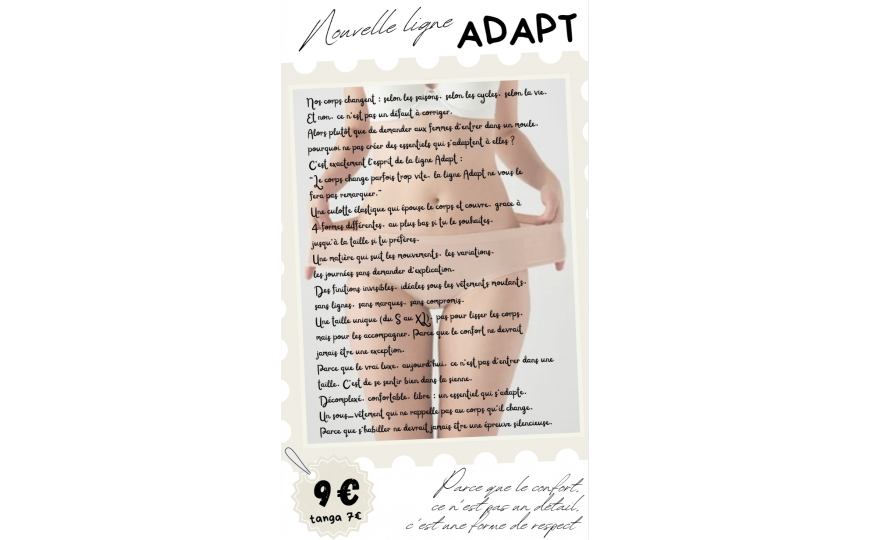 Nouvelle ligne ADAPT
Nos corps changent : selon les saisons, selon les cycles, selon la vie.
Et non, ce n'est pas un défaut à corriger.
Alors plutôt que de demander aux femmes d'entrer dans un moule,
pourquoi ne pas créer des essentiels qui s'adaptent à elles ?
C'est exactement l'esprit de la ligne Adapt :
"Le corps change parfois trop vite, la ligne Adapt ne vous le
fera pas remarquer."
Une culotte élastique qui épouse le corps et couvre, grace à
4 formes différentes, au plus bas si tu le souhaites,
jusqu'à la taille si tu préfères.
Une matière qui suit les mouvements, les variations,
les journées sans demander d'explication.
Des finitions invisibles, idéales sous les vêtements moulants,
sans lignes, sans marques, sans compromis.
Une taille unique (du S au XL), pas pour lisser les corps,
mais pour les accompagner. Parce que le confort ne devrait
jamais être une exception.
Parce que le vrai luxe, aujourd'hui, ce n'est pas d'entrer dans une
taille. C'est de se sentir bien dans la sienne.
Décomplexé, confortable, libre : un essentiel qui s'adapte.
Un sous_vêtement qui ne rappelle pas au corps qu'il change.
Parce que s'habiller ne devrait jamais être une épreuve silencieuse.
9 €
tanga 7€
Parce que le confort,
ce n'est pas un détail,
c'est une forme de respect